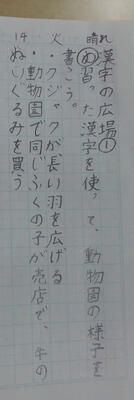 晴れ 漢字の広場①
め 習った漢字を使って、動物園の様子を
書こう。
火・クジャクが長い羽を広げる
・動物園で同じふくの子が売店で、牛の
14 ぬいぐるみを買う